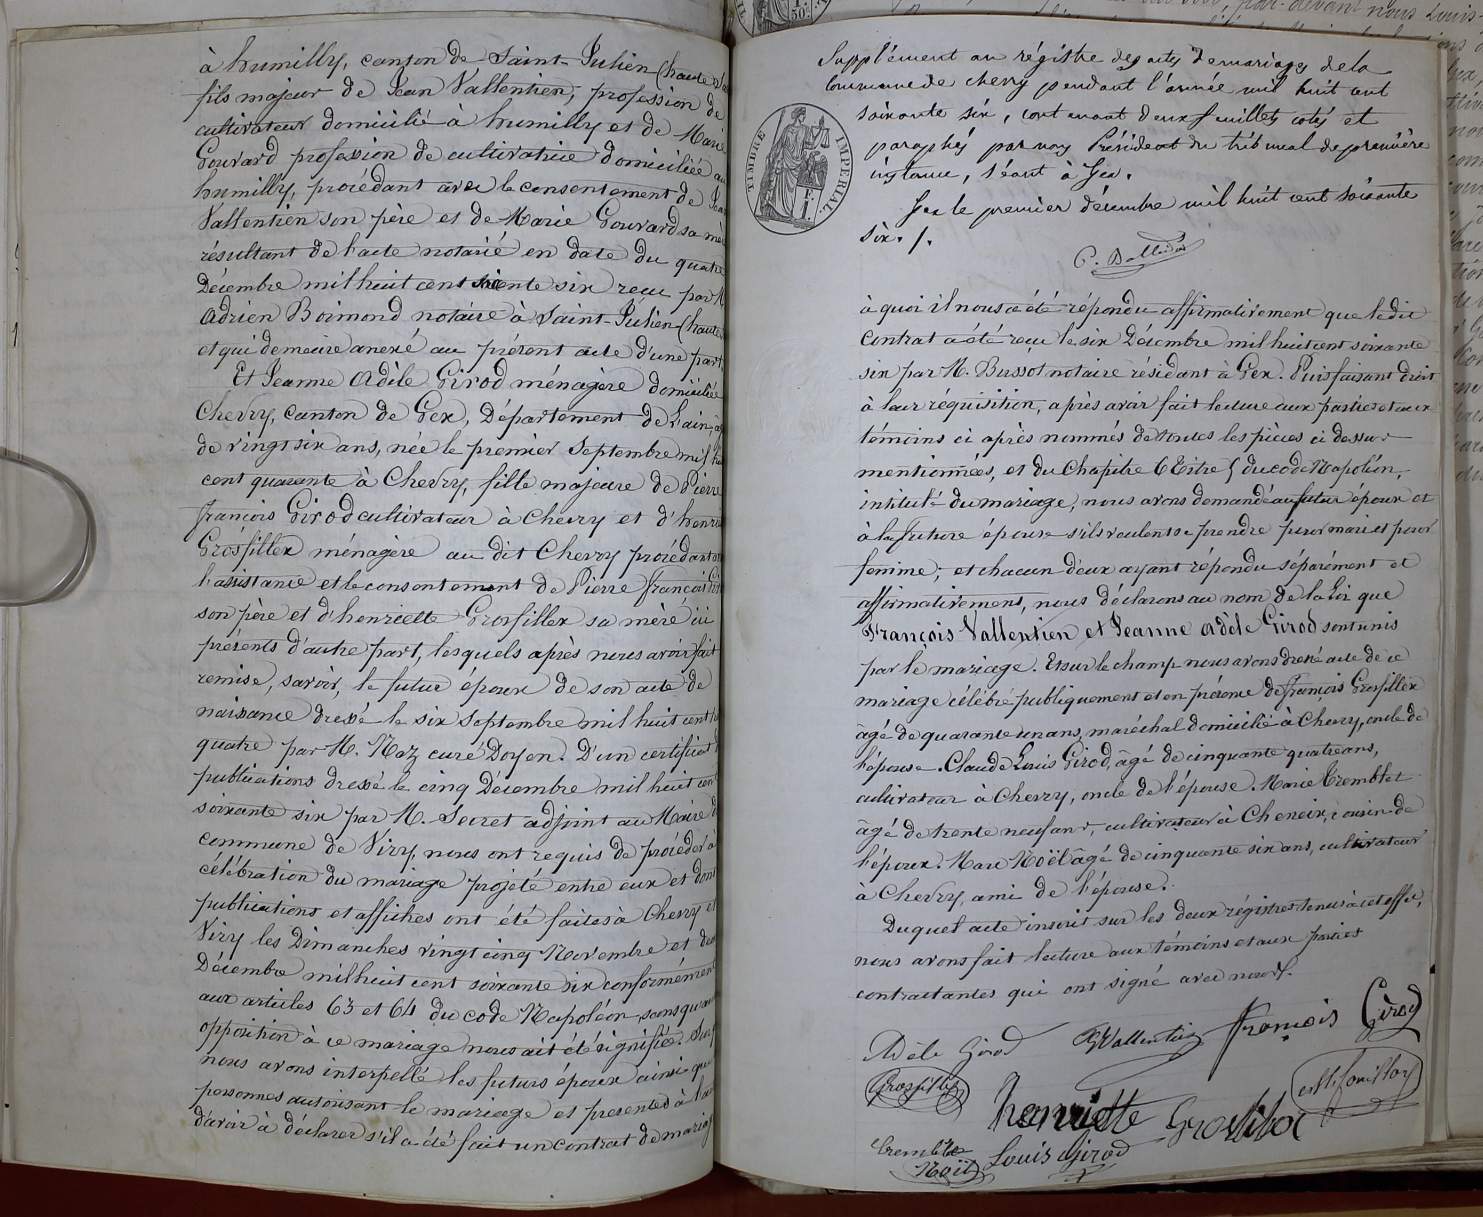 à humilly, canton de Saint-Julien (haute
fils majeur de Jean Vallentien, profession de
cultivateur domicilié à humilly et de Marie
Gouvard profession de cultivatrice domiciliée au
humilly, procédant avec le consentement de Jean
Vallentien son père et de Marie Gouvard sa mè
résultant de l'acte notarié en date du quatre
Décembre mil huit cent soixante six recu par M
Adrien Boimond notaire à Saint-Julien (haute
et qui demeure anexé au présent acte d'une part
Et Jeanne Adèle Girod ménagère domiciliée
Chevry, canton de Gex, Département de l'ain, â
de vingt six ans, née le premier Septembre mil hu
cent quarante à Chevry, fille majeure de Pierre
françois Girod cultivateur à Chevry et d'henri
Grosfillex ménagère au dit Chevry procédant
l'assistance et le consentement de Pierre françois Gi
son père et d'henriette Grosfillex sa mère ici
présents d'autre part, lesquels après nous avoir fait
remise, savoir, le futur époux de son acte de
naissance dressé le six Septembre mil huit cent
quatre par M. Naz curé Doyen. D'un certificat d
publications dressé le cinq Décembre mil huit cent
soixante six par M. Secret adjoint au Maire d
commune de Viry, nous ont requis de procéder à
célébration du mariage projeté entre eux et dont
publications et affiches ont été faites à Chevry et
Viry les Dimanches vingt cinq Novembre et deu
Décembre mil huit cent soixante six conformément
aux articles 63 et 64 du code Napoléon, sans qu'au
opposition à ce mariage nous ait été signifié. Sur
nous avons interpellé les futurs époux ainsi que
personnes autorisant le mariage et presentes à l'ac
d'avoir à déclarer s'il a été fait un contrat de mariag
Supplément au régistre des actes de mariages de la
Commune de chevry pendant l'année mil huit cent
soixante six, contenant deux feuillets cotés et
paraphés par nous Président du tribunal de première
instance, séant à Gex.
Gex le premier décembre mil huit cent soixante
six. /.
TIMBRE IMPÉRIAL
F.
1.
à quoi il nous a été répondu affirmativement que le dit
contrat a été recu le six Décembre mil huit cent soixante
six par M. Bussot notaire résidant à Gex. Puis faisant droit
à leur requisition, après avoir fait lecture aux parties et aux
témoins ci après nommés de toutes les pièces ci dessus
mentionnées, et du Chapitre 6 Titre 5 du code Napoléon,
intitulé du mariage, nous avons demandé au futur époux et
à la future épouse s'ils veulent se prendre pour mari et pour
femme; et chacun d'eux ayant répondu séparément et
affirmativement, nous déclarons au nom de la loi que
François Vallentien et Jeanne Adèle Girod sont unis
par le mariage. Et sur le champ nous avons dressé acte de ce
mariage célébré publiquement et en présence de françois Grosfillex
âgé de quarante un ans, maréchal domicilié à Chevry, oncle de
l'épouse. Claude Louis Girod, âgé de cinquante quatre ans,
cultivateur à Chevry, oncle de l'épouse. Marie Tremblet
âgé de trente neuf ans, cultivateur à Chenex, cousin de
l'époux. Marc Noël âgé de cinquante six ans, cultivateur
à Chevry, ami de l'épouse.
Duquel acte inscrit sur les deux régistres tenus à cet effet,
nous avons fait lecture aux témoins et aux parties
contractantes qui ont signé avec nous.
Adèle Girod Vallentin françois Girod
Grosfillex
henriette Grosfillex
Tremblet
Noël Louis Girod